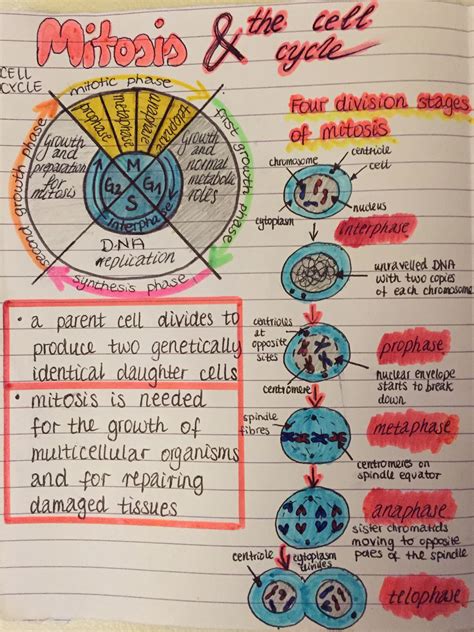 Mitosis & the cell
cycle
CELL
CYCLE
mitotic phase
prophase
metaphase
anaphase
telophase
second growth phase
first growth phase
Growth
and
preparation
for
mitosis
Growth
and
normal
metabolic
roles
M
G2
G1
S
interphase
DNA
replication
synthesis phase
Four division stages
of mitosis
chromosome
centriole
cell
nucleus
cytoplasm
interphase
unravelled DNA
with two copies
of each chromosome
centrioles
at
opposite
sites
prophase
nuclear envelope
starts to break
down
centromere
spindle
fibres
metaphase
centromeres on
spindle equator
anaphase
sister chromatids
moving to opposite
poles of the spindle
centriole
cytoplasm
divides
telophase
• a parent cell divides to
produce two genetically
identical daughter cells
• mitosis is needed
for the growth of
multicellular organisms
and for repairing
damaged tissues